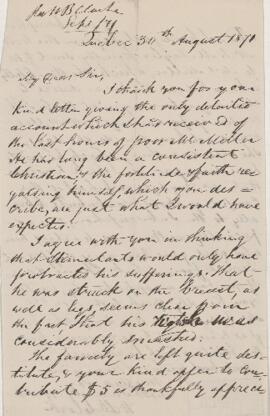 Rev W B Clark
Sept /71
Quebec 30th August 1871
My Dear Sir,
I thank you for your
kind letter giving the only detailed
account which I had received of
the last hours of poor Mr Miller
He has long been a consistent
Christian & the fortitude & faith re
garding himself, which you des=
cribe, are just what I would have
expected.
I agree with you in thinking
that stimulants would only have
protracted his sufferings. That
he was struck on the breast, as
well as legs, seems clear from
the fact that his was
considerably smashed.
The family are left quite des
titute, & your kind offer to con
tribute $5 is thankfully apprec